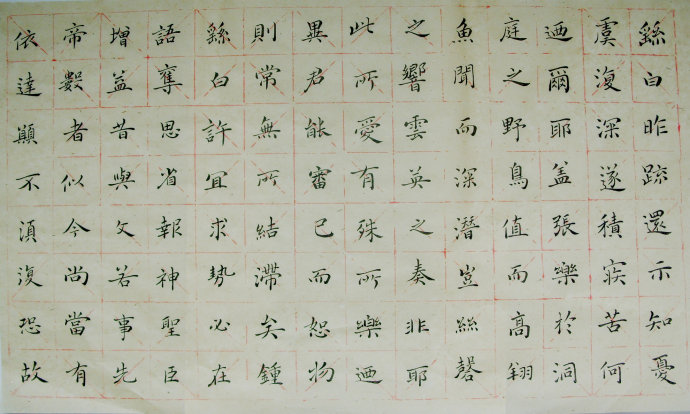 繇白昨疏還示知憂
虞復深遂積疾苦何
迺爾耶蓋張樂於洞
庭之野鳥值而高翔
魚聞而深潛豈絲磬
之響雲英之奏非耶
此所愛有殊所樂迺
異君能審已而恕物
則常無所結滯矣鍾
繇白許宜求勢必在
語奪思省報神聖臣
增益昔與文若事先
帝數者似今尚當有
依達願不須復恐故